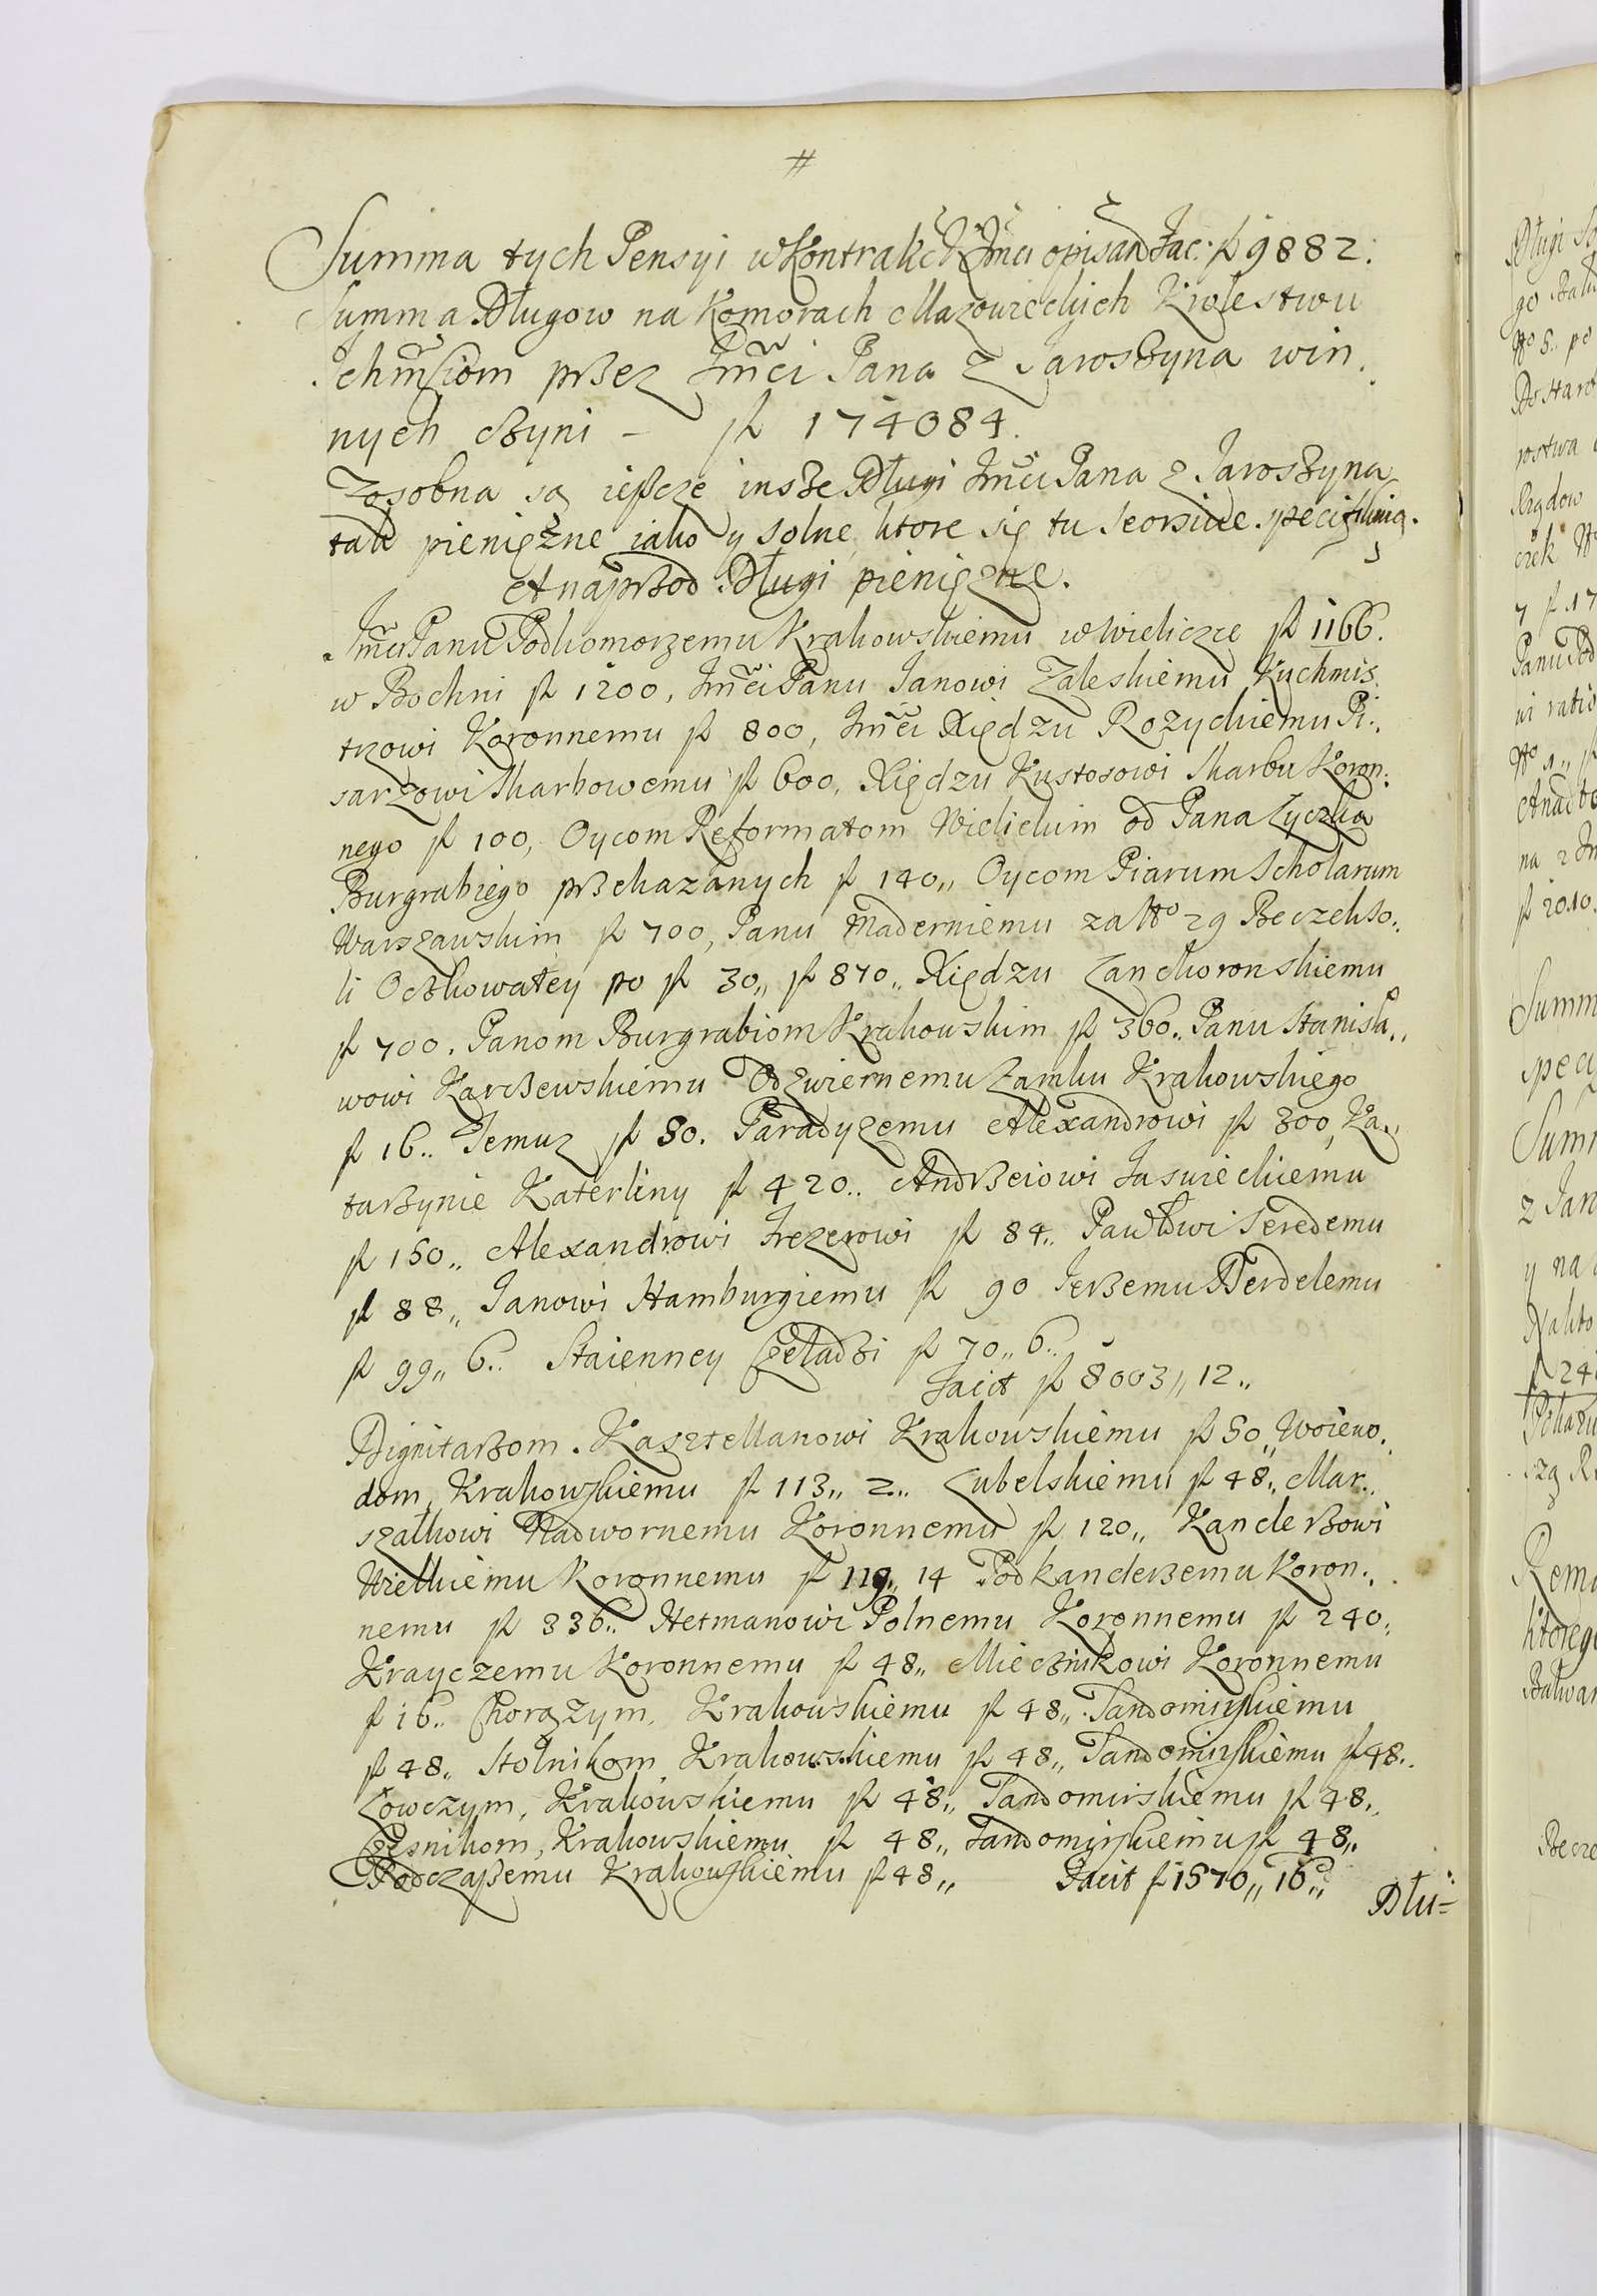 #
Summa tych Pensyi w Kontrakcie Jmci opisan fac: fl 9882.
Summa Długow na Komorach Mazowieckych Krolestwu
Ichmciom przez Jmci Pana z Jaroszyna win.
nych czyni – fl 174084.
Zosobna są ieszcze insze Długi Jmci Pana z Jaroszyna
tak pieniężne iako y solne, ktore się tu seorsiue specifikuią.
A naprzod Długi pieniężne.
Jmci Panu Podkomorzemu Krakowskiemu w Wieliczce fl 1166.
w Bochni fl 1200, Jmci Panu Janowi Zaleskiemu Kuchmis.
trzowi Koronnemu fl 800, Jmci Xiędzu Rozyckiemu Pi.
sarzowi Skarbowemu fl 600, Xiędzu Kustosowi Skarbu Koron.
nego fl 100, Oycom Reformatom Wielickim od Pana Zyczka
Burgrabiego przekazanych fl 140,, Oycom Piarum Scholarum
Warszawskim fl 700, Panu Maderniemu za No 29 Beczek So.
li Oczkowatey po fl 30,, fl 870,, Xiędzu Zanckoronskiemu
fl 700. Panom Burgrabiom Krakowskim fl 360.. Panu Stanisła..
wowi Karczewskiemu Odzwiernemu Zamku Krakowskiego
fl 16.. Temuz fl 80. Paradyzemu Alexandrowi fl 300, Ka..
tarzynie Katerliny fl 420.. Andrzeiowi Jasuieckiemu
fl 150.. Alexandrowi Trezerowi fl 84.. Pawłowi Seredemu
fl 88,, Janowi Hamburgiemu fl 90 Jerzemu Perdelemu
fl 99,, 6.. Staienney Czeladzi fl 70,, 6..
Facit fl 8003,, 12,,
Dignitarzom. Kasztellanowi Krakowskiemu fl 50,, Woiewo.
dom, Krakowskiemu fl 113,, 2.. Lubelskiemu fl 48,, Mar..
szałkowi Nadwornemu Koronnemu fl 120,, Kanclerzowi
Wielkiemu Koronnemu fl 119,, 14 Podkanclerzemu Koron..
nemu fl 336.. Hetmanowi Polnemu Koronnemu fl 240,,
Krayczemu Koronnemu fl 48,, Miecznikowi Koronnemu
fl 16.. Chorązym, Krakowskiemu fl 48,, Sandomirskiemu
fl 48,, Stolnikom, Krakowskiemu fl 48,, Sandomirskiemu fl 48..
Łowczym, Krakowskiemu fl 48,, Sandomirskiemu fl 48,,
Czesnikom, Krakowskiemu fl 48,, Sandomirskiemu fl 48,,
Podczaszemu Krakowskiemu fl 48,, Facit fl 1570,, 16,,
Dłu=